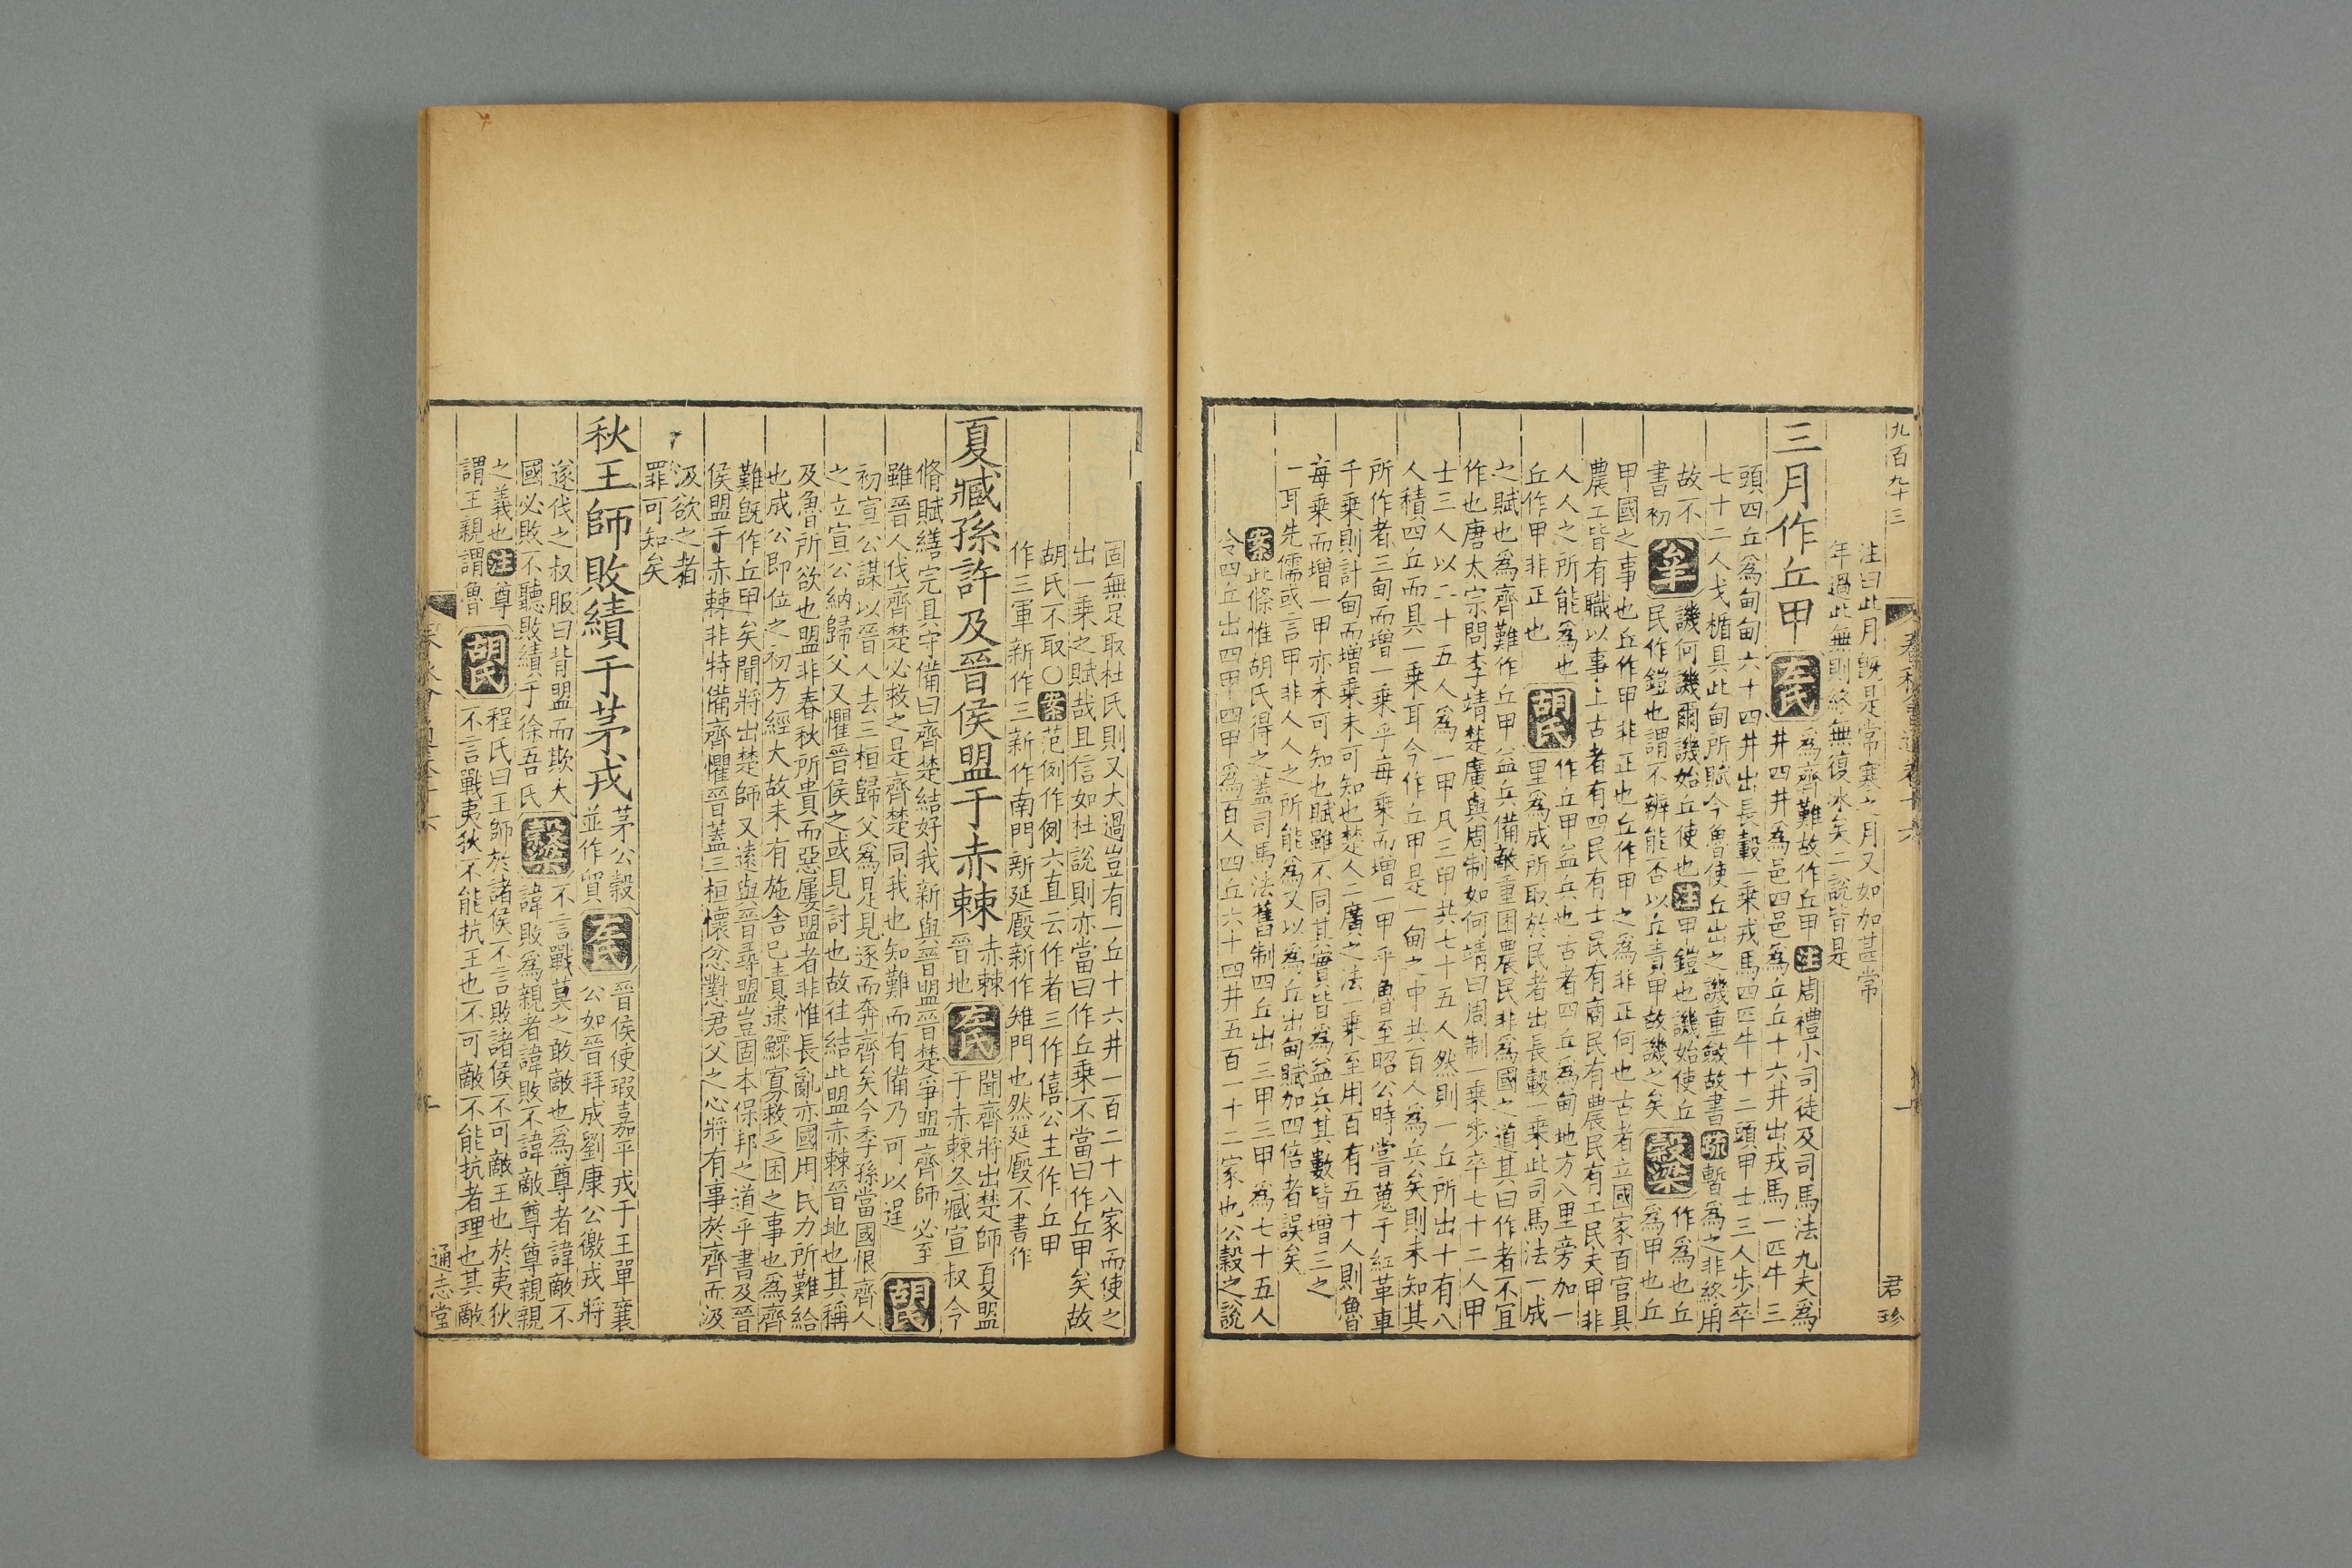 九百九十三
春秋會通卷十六
一
君珍
注曰此月旣是常寒之月又如加甚常
年過此無則終無復冰矣二說皆是
三月作丘甲
左氏
爲齊難故作丘甲注周禮小司徒及司馬法九夫爲
井四井爲邑四邑爲丘丘十六井出戎馬一匹牛三
頭四丘爲甸甸六十四井出長轂一乗戎馬四匹牛十二頭甲士三人步卒
七十二人戈楯具此甸所賦今魯使丘出之譏重斂故書疏暫爲之非終用
故不
書初
公羊
譏何譏爾譏始丘使也注甲鎧也譏始使丘
民作鎧也謂不辨能否以丘責甲故譏之矣
穀梁
作爲也丘
爲甲也丘
甲國之事也丘作甲非正也丘作甲之爲非正何也古者立國家百官具
農工皆有職以事上古者有四民有士民有商民有農民有工民夫甲非
人人之所能爲也
丘作甲非正也
胡氏
作丘甲益兵也古者四丘爲甸地方八里旁加一
里爲成所取於民者出長轂一乗此司馬法一成
之賦也爲齊難作丘甲益兵備敵重困農民非爲國之道其曰作者不宜
作也唐太宗問李靖楚廣與周制如何靖曰周制一乗步卒七十二人甲
士三人以二十五人爲一甲凡三甲共七十五人然則一丘所出十有八
人積四丘而具一乗耳今作丘甲是一甸之中共百人爲兵矣則未知其
所作者三甸而增一乗乎每乗而增一甲乎魯至昭公時嘗蒐于紅革車
千乗則計甸而增乗未可知也楚人二廣之法一乗至用百有五十人則魯
每乗而增一甲亦未可知也賦雖不同其實皆爲益兵其數皆增三之
一耳先儒或言甲非人人之所能爲又以爲丘出甸賦加四倍者誤矣
案此條惟胡氏得之蓋司馬法舊制四丘出三甲三甲爲七十五人
今四丘出四甲四甲爲百人四丘六十四井五百一十二家也公穀之說
固無足取杜氏則又大過豈有一丘十六井一百二十八家而使之
出一乗之賦哉且信如杜說則亦當曰作丘乗不當曰作丘甲矣故
胡氏不取○案范例作例六直云作者三作僖公主作丘甲
作三軍新作三新作南門新延廏新作雉門也然延廏不書作
夏臧孫許及晉侯盟于赤棘
赤棘
晉地
左氏
聞齊將出楚師夏盟
于赤棘冬臧宣叔令
脩賦繕完具守備曰齊楚結好我新與晉盟晉楚爭盟齊師必至
雖晉人伐齊楚必救之是齊楚同我也知難而有備乃可以逞
胡氏
初宣公謀以晉人去三桓歸父爲是見逐而奔齊矣今季孫當國恨齊人
之立宣公納歸父又懼晉侯之或見討也故往結此盟赤棘晉地也其稱
及魯所欲也盟非春秋所貴而惡屢盟者非惟長亂亦國用民力所難給
也成公即位之初方經大故未有施舍已責逮鰥寡救乏困之事也爲齊
難旣作丘甲矣聞將出楚師又遠與晉尋盟豈固本保邦之道乎書及晉
侯盟于赤棘非特備齊懼晉蓋三桓懷忿懟君父之心將有事於齊而汲
汲欲之者
罪可知矣
秋王師敗績于茅戎
茅公穀
並作貿
左氏
晉侯使瑕嘉平戎于王單襄
公如晉拜成劉康公徼戎將
遂伐之叔服曰背盟而欺大
國必敗不聽敗績于徐吾氏
穀梁
不言戰莫之敢敵也爲尊者諱敵不
諱敗爲親者諱敗不諱敵尊尊親親
之義也注尊
謂王親謂魯
胡氏
程氏曰王師於諸侯不言敗諸侯不可敵王也於夷狄
不言戰夷狄不能抗王也不可敵不能抗者理也其敵
通志堂